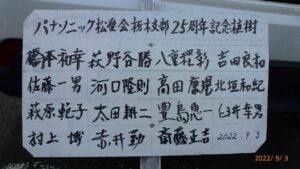 パナソニック松愛会栃木支部25周年記念植樹
橋本和幸 荻野谷勝 八重樫彰 吉田良和
佐藤一男 河口隆則 高田康男 北垣和紀
萩原範子 太田耕二 豊島恵一 臼井幸男
村上博 赤井勤 斎藤正吉 2022.9.3
2022/9/3